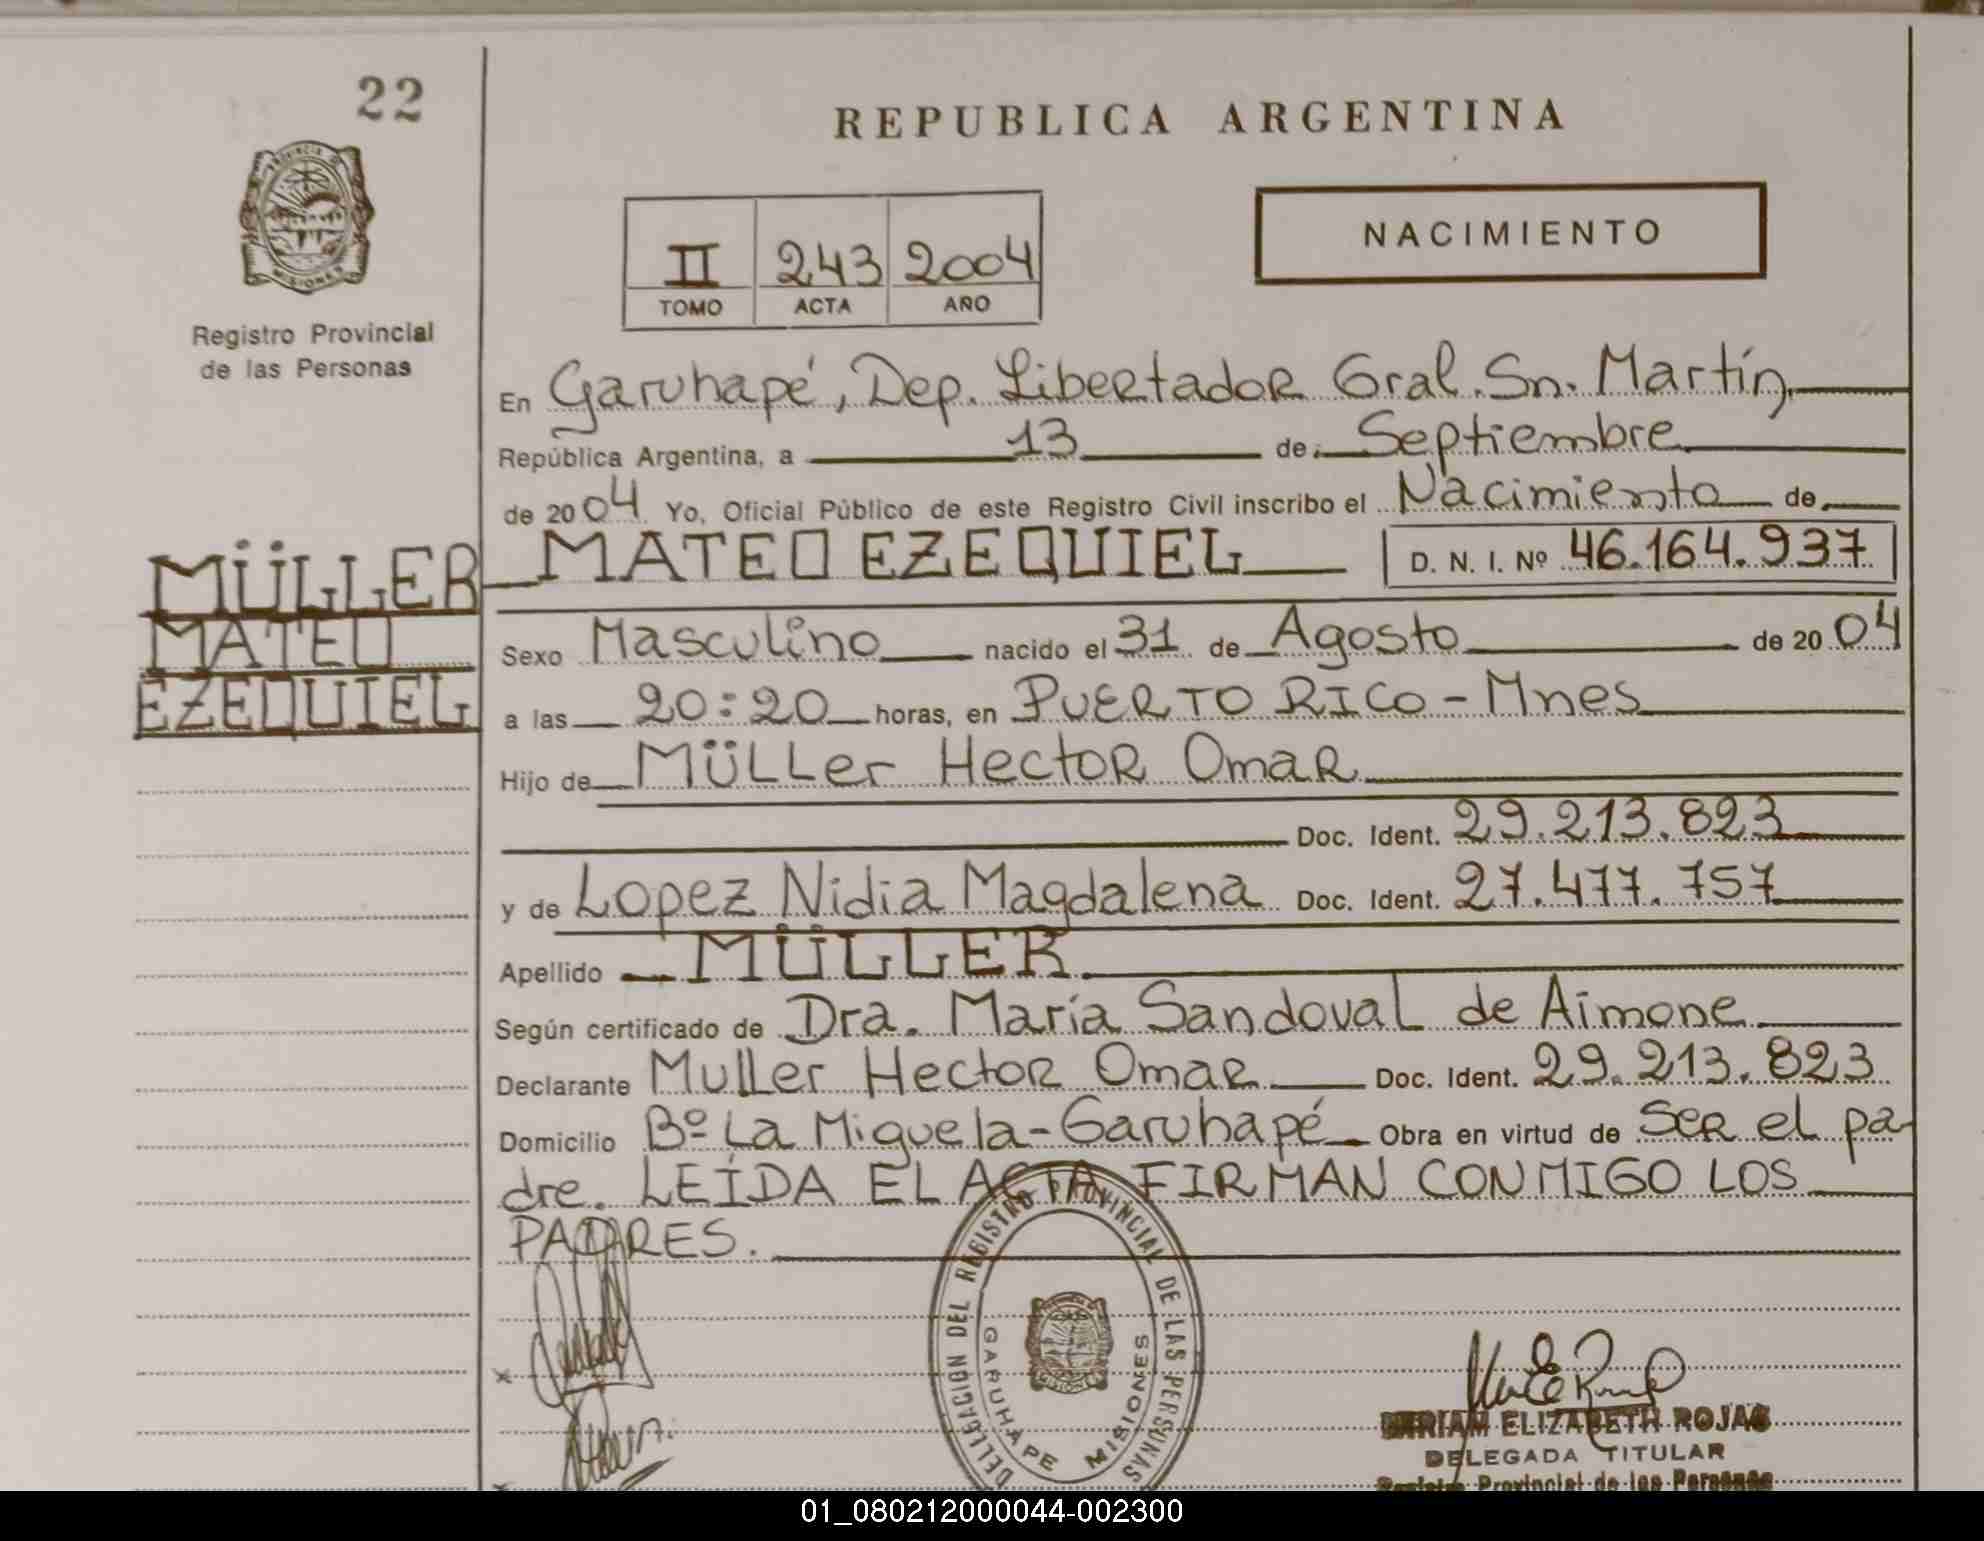 22
REPUBLICA ARGENTINA
PROVINCIA DE MISIONES
Registro Provincial
de las Personas
II 243 2004
TOMO ACTA AÑO
NACIMIENTO
En Garuhapé, Dep. Libertador Gral. Sn. Martín,
República Argentina, a 13 de Septiembre
de 2004 Yo, Oficial Público de este Registro Civil inscribo el Nacimiento de
MATEO EZEQUIEL D. N. I. Nº 46.164.937
MÜLLER
MATEO
EZEQUIEL
Sexo Masculino nacido el 31 de Agosto de 2004
a las 20:20 horas, en PUERTO RICO - Mnes
Hijo de MÜLLer HectoR OmaR
Doc. Ident. 29.213.823
y de Lopez Nidia Magdalena Doc. Ident. 27.477.757
Apellido MÜLLER
Según certificado de Dra. María Sandoval de Aimone
Declarante Muller Hector Omar Doc. Ident. 29.213.823
Domicilio Bº La Miguela - Garuhapé Obra en virtud de ser el pa-
dre. LEÍDA EL ACTA FIRMAN CONMIGO LOS
PADRES.
DELEGACION DEL REGISTRO PROVINCIAL DE LAS PERSONAS
GARUHAPE MISIONES
MIRIAM ELIZABETH ROJAS
DELEGADA TITULAR
Registro Provincial de las Personas
01_080212000044-002300